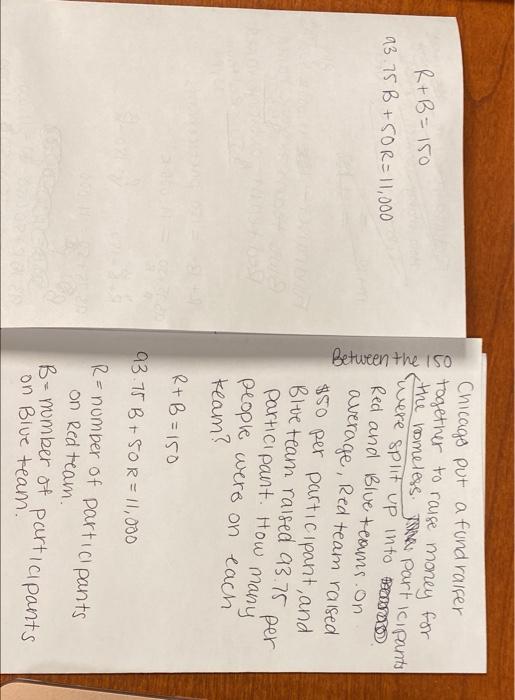 R+B=150
93.75B+50R=11,000
Chicago put a fundraiser
together to raise money for
the homeless.
Between the 150 participants
were split up into
Red and Blue teams. On
average, Red team raised
$50 per participant, and
Blue team raised 93.75 per
participant. How many
people were on each
team?
R+B=150
93.75B+50R=11,000
R=number of participants
on Red team.
B=number of participants
on Blue team.